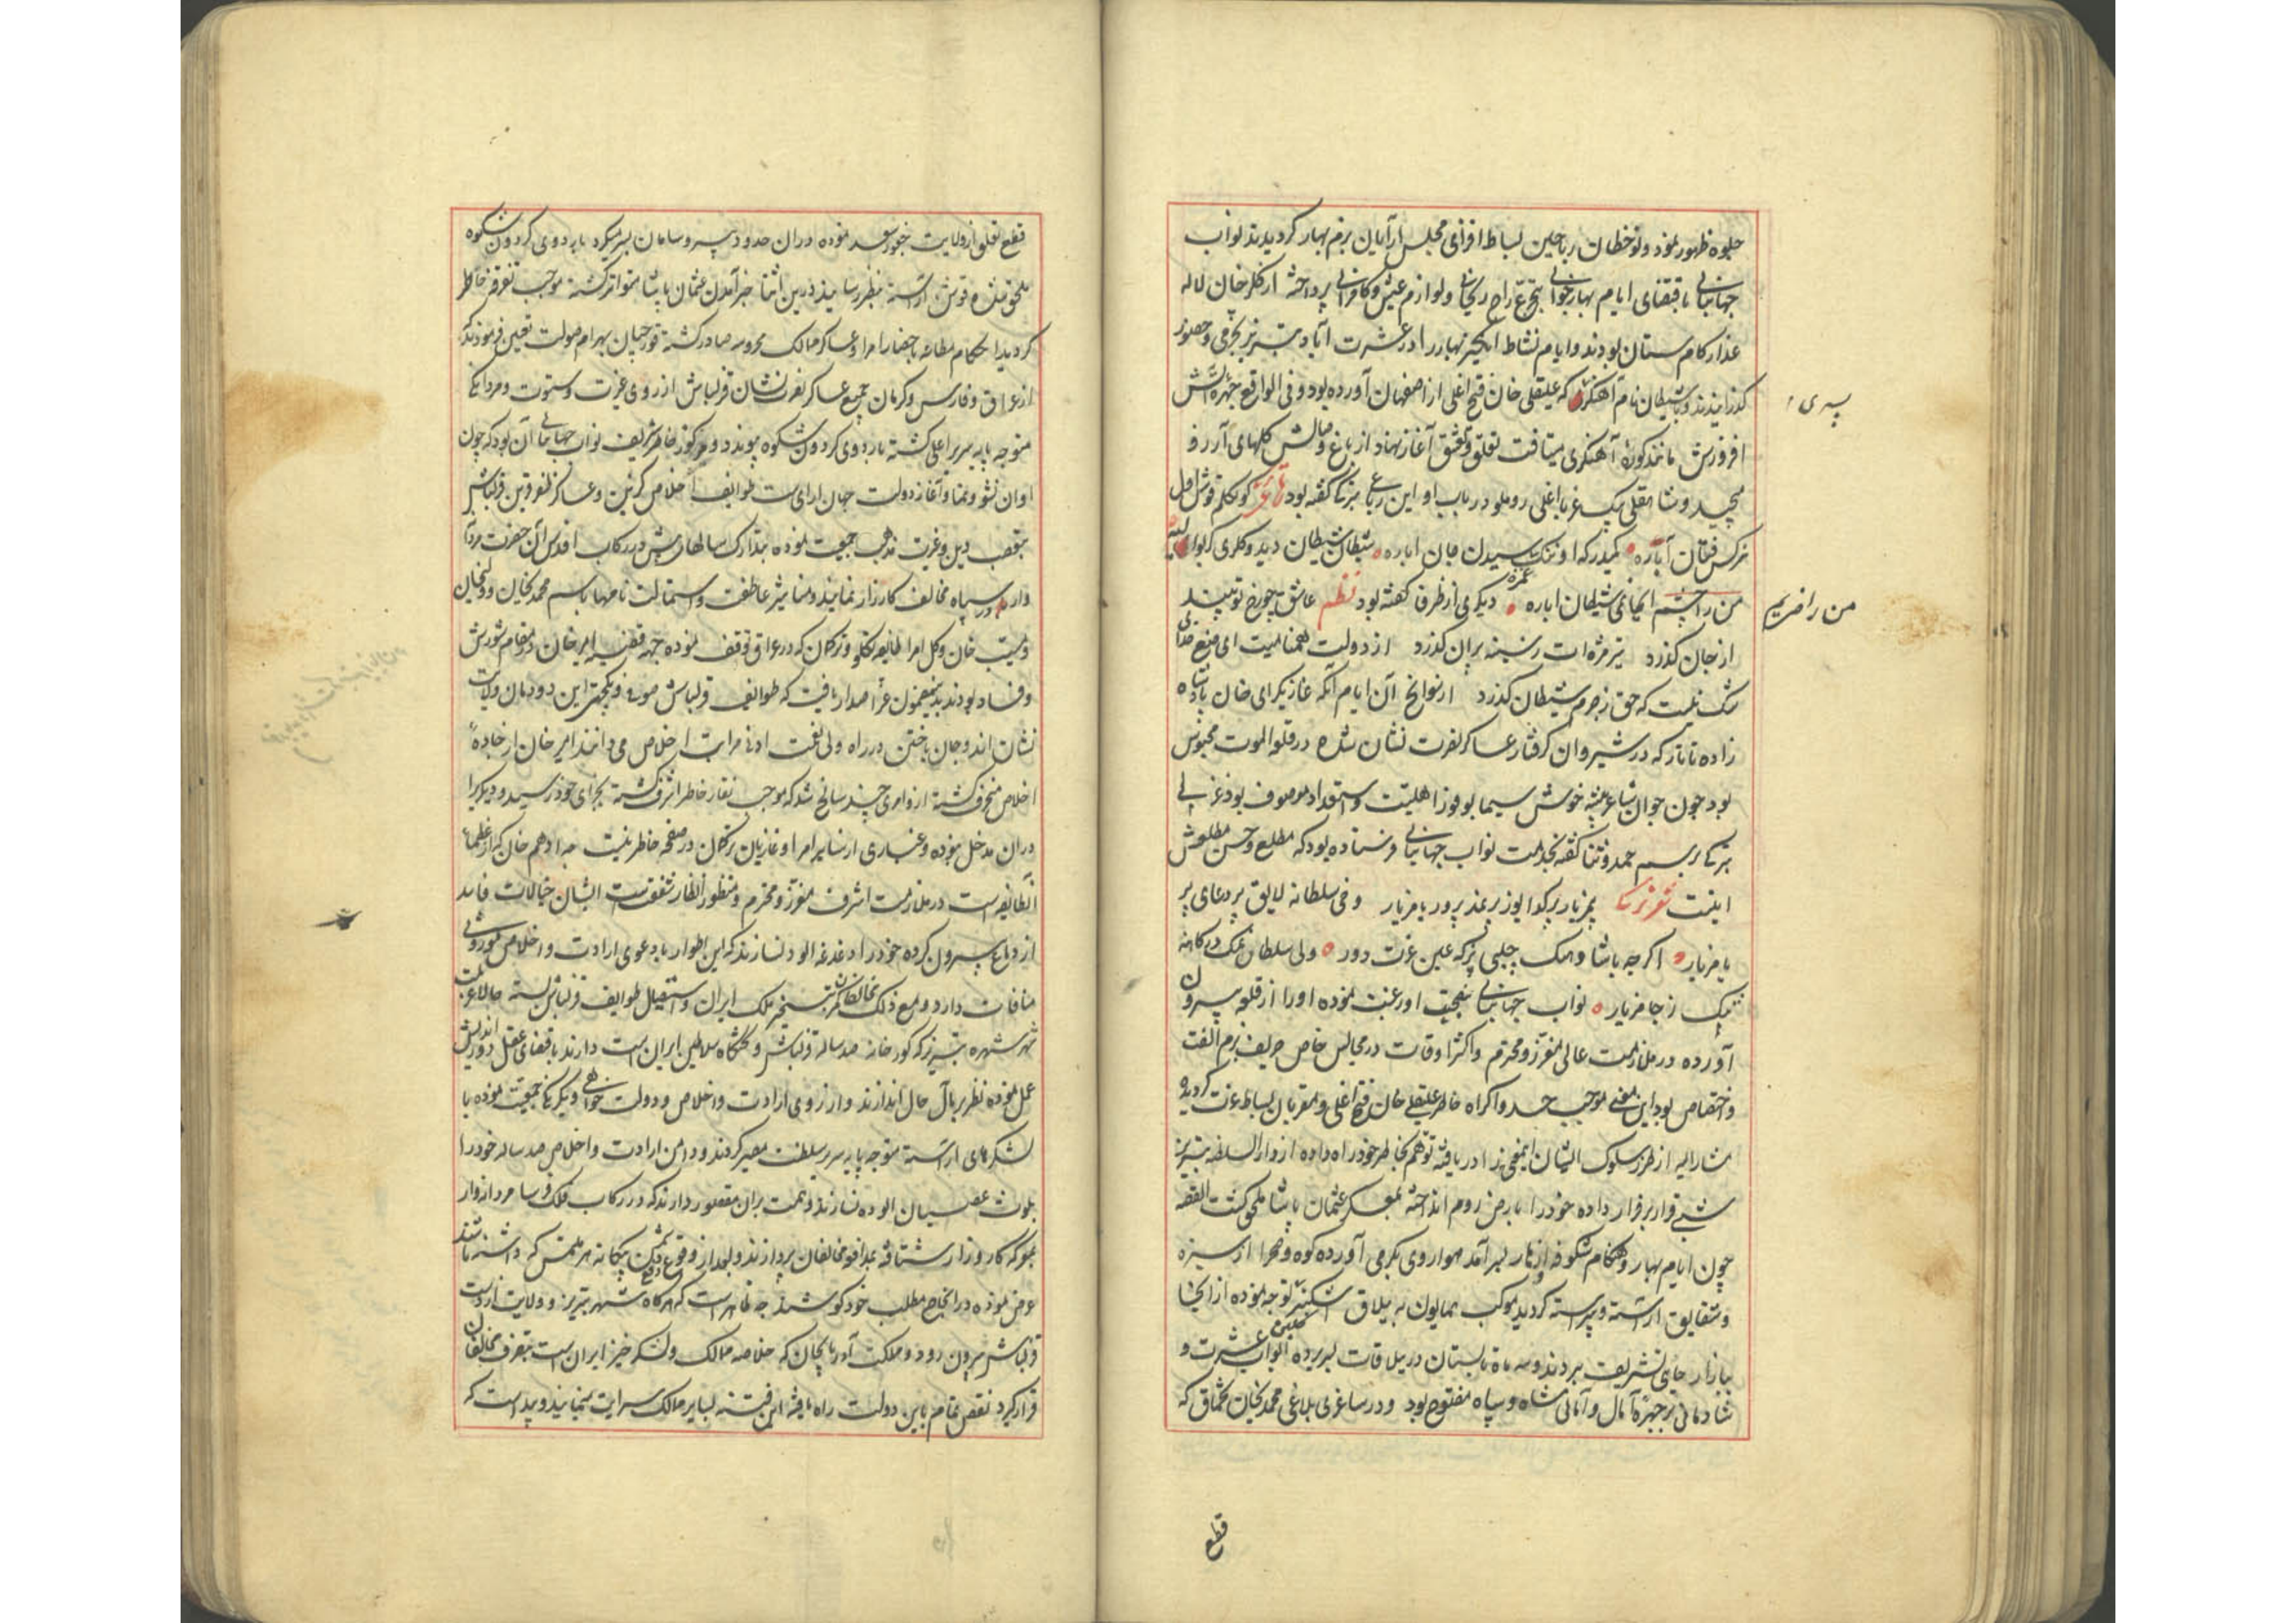 جلوه ظهور نمود و نوخطان ریاحین بساط افزای مجلس آرایان بزم بهار کردیدند نواب
جهانبانی باقتضای ایام بهار جوانی بتجرع راح ریحانی ولوازم عیش وکامرانی پرداخته از کلرخان لاله
عذار کام ستان بودند و ایام نشاط انکیز بهار را در عشرت آباد تبریز بخرمی وحضور
کذرانیدند و با شیطان نام آهنکر که علیقلی خان فتح اغلی از اصفهان آورده بود و فی الواقع چهره آتش
پسری
افروزش مانند کوره آهنکری میتافت تعلق و تعشق آغاز نهاد از باغ وصالش کلهای آرزو
میچید و شاهقلی بیک غریبا اغلی روملو در باب او این رباعی ترکی کفته بود
من را چشم شیطان اباره دیکری از ظرفا کفته بود نظم عاشق چو رخ تو بیند
من را ضریم
از جان کذرد تیر مژه ات ز سینه بران کذرد از دولت همنامیت ای منبع
شک نیست که حق ز جرم شیطان کذرد از سوانح آن ایام آنکه غازیکرای خان پادشاه
زاده تاتار که در شیروان کرفتار عساکر نصرت نشان شده در قلعه الموت محبوس
بود چون جوان شاعر پیشه خوش سیما بوفور اهلیت و استعداد موصوف بود غزلی
ترکی برسم حمد و ثنا کفته بخدمت نواب جهانبانی فرستاده بود که مطلع وحسن مطلعش
اینست شعر ترکی
یامزیار اکرچه پاشا وبک چلبی عین عزت دور ولی سلطان
نواب جهانبانی بصحبت او رغبت نموده او را از قلعه بیرون
آورده در ملازمت عالی معزز و محترم و اکثر اوقات در مجالس خاص حریف بزم الفت
واختصاص بود این معنی موجب حسد واکراه خاطر علیقلی خان فتح اغلی و مقربان بساط عزت کردیده
مشارالیه از طرز سلوک ایشان اینمعنی را دریافته توهم بخاطر خود راه داده از دارالسلطنه تبریز
شبی قرار بر فرار داده خود را بارض روم انداخته بمعسکر عثمان پاشا ملحق کشت القصه
چون ایام بهار و هنکام شکوفه و ازهار بسر آمد هوا روی بکرمی آورده کوه وصحرا از سبزه
وشقایق آراسته و پیراسته کردید موکب همایون به ییلاق اشکنبر توجه نموده از آنجا
ببازار چایی تشریف بردند و سه ماه تابستان در ییلاقات بسر برده ابواب عشرت و
شادمانی بر چهره آمال و امانی شاه و سپاه مفتوح بود و در ساغری بلاغی محمد خان تخماق که
قطع
قطع تعلق از ولایت خجور سعد نموده در آن حدود بی سر و سامان بسر میکرد باردوی کردون شکوه
ملحق شده قوشون آراسته بنظر رسانید درین اثنا خبر آمدن عثمان پاشا متواتر کشته موجب تفرقه خاطر
کردید احکام مطاعه باحضار امرا و عساکر ممالک محروسه صادر کشته قورچیان بهرام صولت تعیین فرمودند که
از عراق وفارس وکرمان جمیع عساکر نصرت نشان قزلباش از روی عزت وستوت و مردانکی
متوجه پایه سریر اعلی کشته باردوی کردون شکوه پیوندد و مرکوز خاطر شریف نواب جهانبانی آن بود که چون
اوان نشو ونما وآغاز دولت جهان آرای ست طوایف اخلاص کزین و عساکر ظفر قرین قزلباش
بتعصب دین وغیرت مذهب جمعیت نموده بتدارک سالهای پیش در رکاب اقدس آن حضرت مردانه
وار در سپاه مخالف کارزار نمایند و مناشیر عاطفت و استمالت نامهها باسم محمد خان و ولیخان
ومسیب خان و کل امرا طایفه تکلو و ترکمان که در عراق توقف نموده جهه قضیه امیر خان در مقام شورش
وفساد بودند بدینمضمون عز اصدار یافت که طوایف قزلباش صوفی و یکجهتی این دودمان ولایت
نشان اند و جان باختن در راه ولی نعمت ادنی مراتب اخلاص می دانند امیر خان از جاده
اخلاص منحرف کشته از و امری چند سانح شد که موجب نقار خاطر اشرف کشته بجزای خود رسید و دیکریرا
در آن مدخل نبوده وغباری از سایر امرا و غازیان ترکمان در صفحه خاطر نیست چه ادهم خان که از عظماء
آنطایفه است در ملازمت اشرف معزز و محترم و منظور انظار شفقت است ایشان خیالات فاسد
از دماغ بیرون کرده خود را دغدغه آلود نسازند که این اطوار با دعوی ارادت و اخلاص موروثی
منافات دارد و مع ذلک مخالفان کمر تسخیر ملک ایران و استیصال طوایف قزلباش بسته حالا عزیمت
شهر شهره تبریز که کور خانه صد ساله قزلباش و تختکاه سلاطین ایران است دارند باقتضای عقل دوراندیش
عمل نموده نظر بر مآل حال اندازند و از روی ارادت و اخلاص و دولت خواهی و یکرنکی جمعیت نموده با
لشکرهای آراسته متوجه پایه سریر سلطنت مصیر کردند و دامن ارادت و اخلاص صد ساله خود را
بلوث عصیان آلوده نسازند و همت بران مقصور دارند که در رکاب فلک فرسا مردانه وار
بمعرکه کارزار شتافته بمدافعه مخالفان پردازند و بعد از وقوع دفع دشمن بیکانه هر ملتمس که داشته باشند
عرض نموده در انجاح مطلب خود کوشند چه ظاهر است که هرکاه شهر تبریز و ولایت از دست
قزلباش بیرون رود و مملکت آذربایجان که خلاصه ممالک و لشکر خیز ایران است بتصرف مخالفان
قرار کیرد نقص تمام باین دولت راه یافته این فتنه بسایر ممالک سرایت مینماید و پیداست که